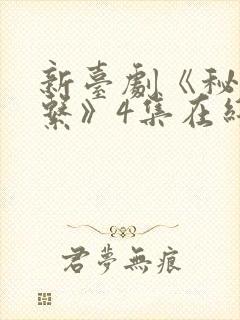 新臺劇《秘
繫》4集在
君夢無痕